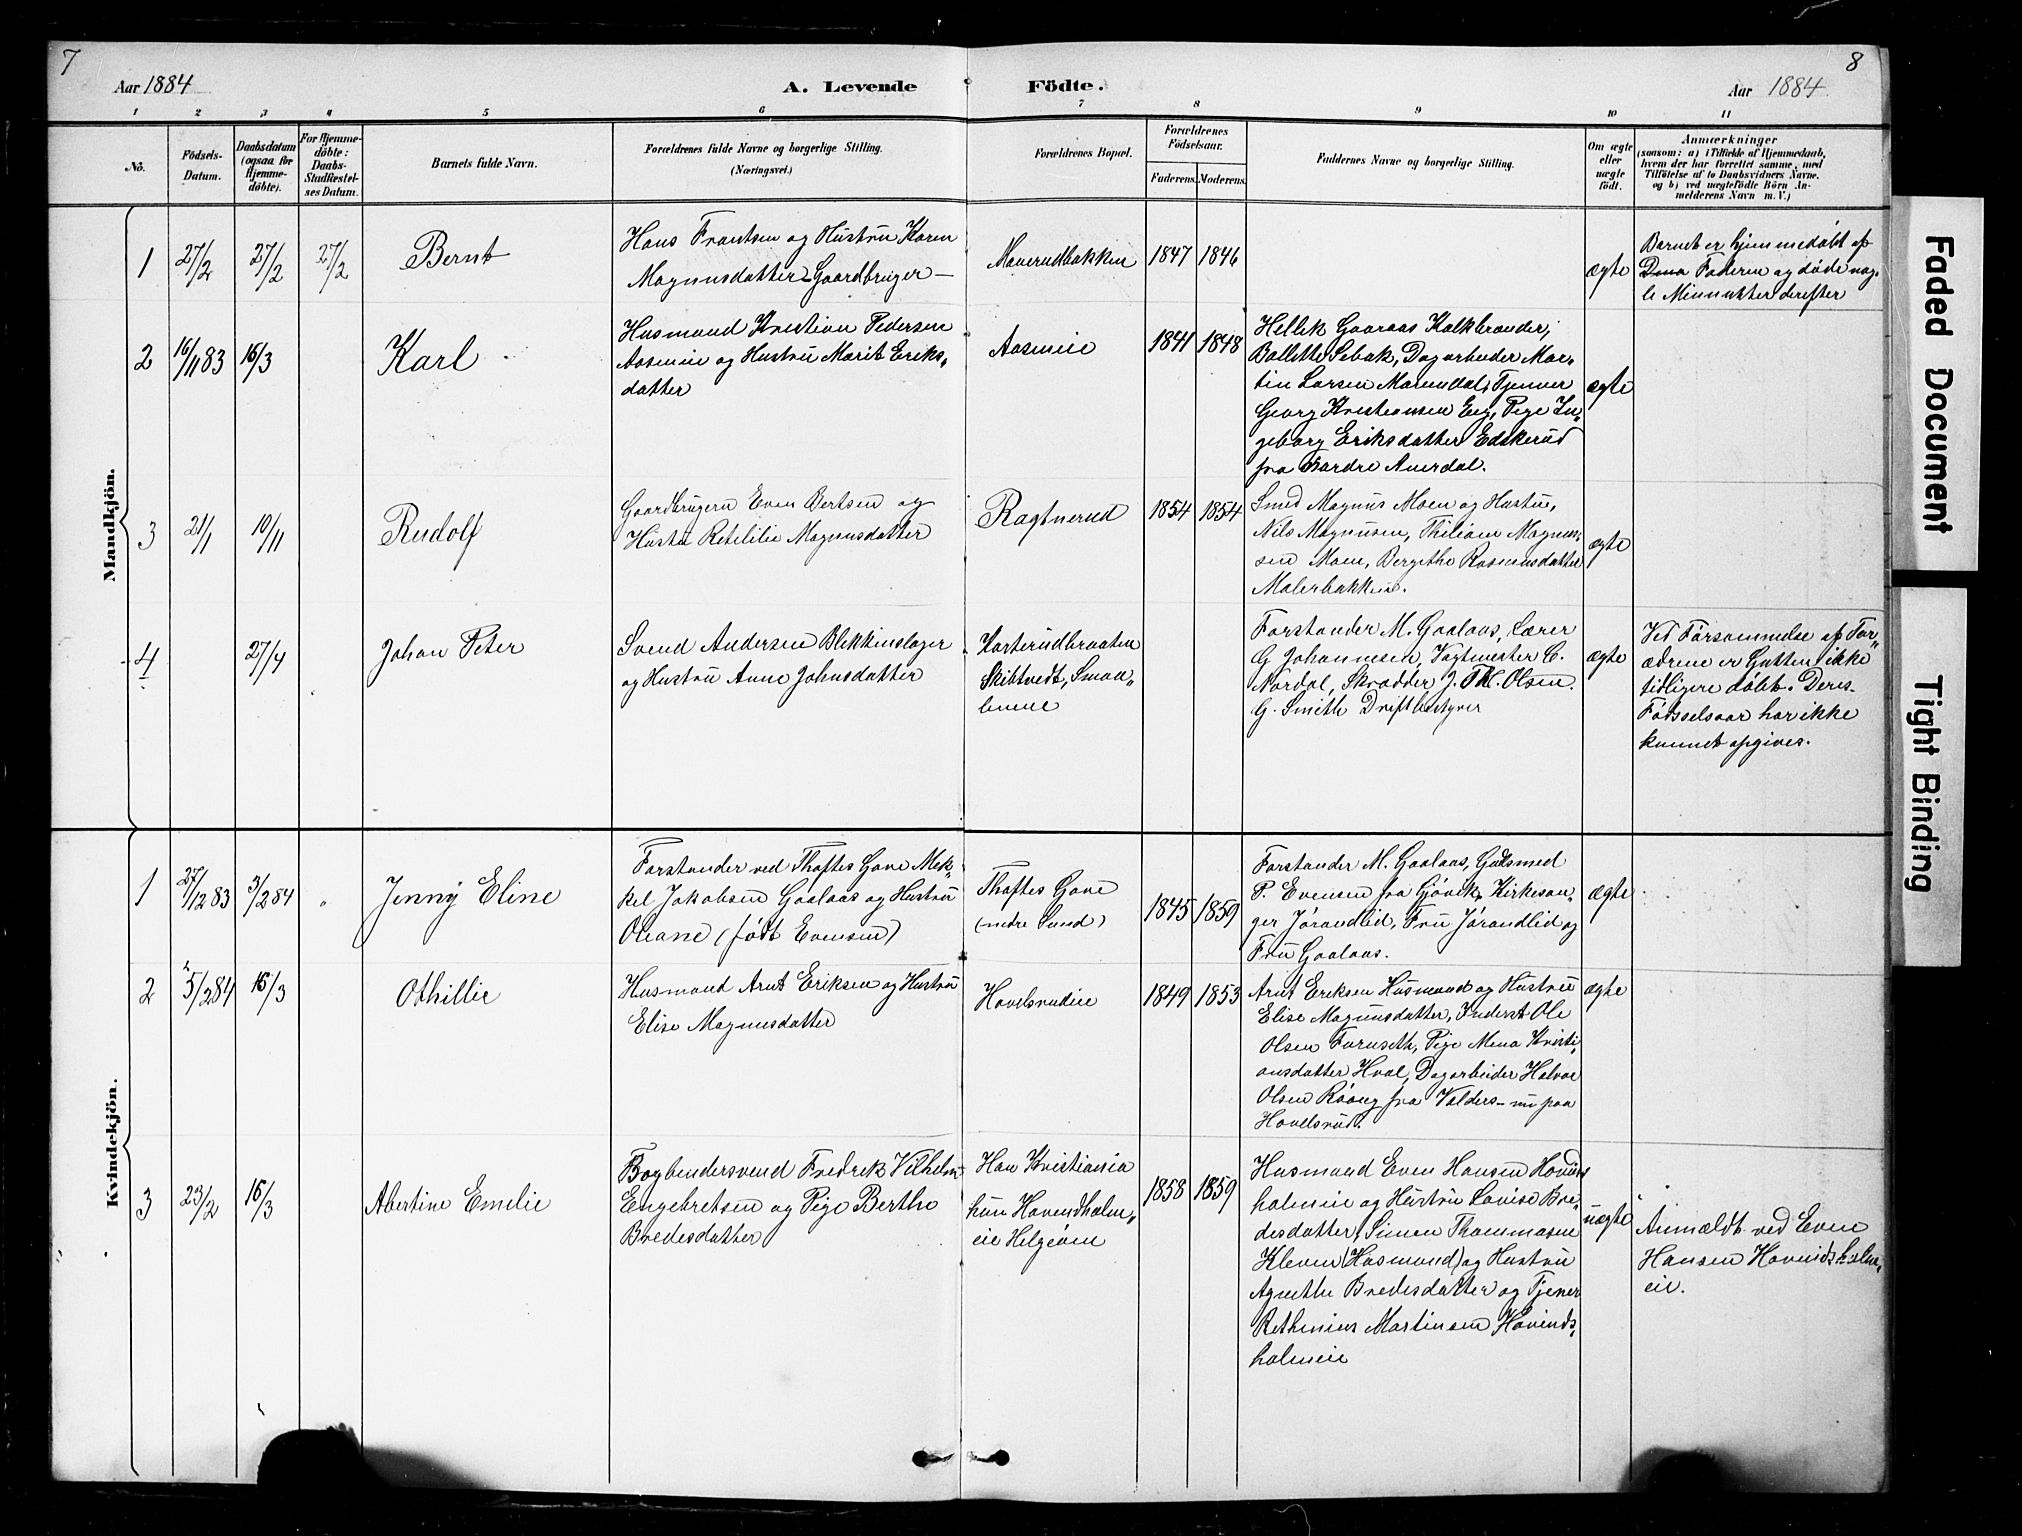 7
8
Aar 1884
A. Levende
Födte.
Aar 1884
1 2 3 4 5 6 7 8 9 10 11
No.
Födsels-
Datum.
Daabsdatum
(ogsaa for
Hjemme-
döbte).
For Hjemme-
döbte:
Daabs-
Stadfæstel-
ses Datum.
Barnets fulde Navn.
Forældrenes fulde Navne og borgerlige Stilling.
(Næringsvei.)
Forældrenes Bopæl.
Forældrenes
Födselsaar.
Faderens. Moderens.
Faddernes Navne og borgerlige Stilling.
Om ægte
eller
uægte
födt.
Anmærkninger
(saasom: a) i Tilfælde af Hjemmedaab,
hvem der har forrettet samme, med
Tilföielse af to Daabsvidners Navne.
og b) ved uægtefödte Börn An-
melderens Navn m. V.)
Mandkjön.
1
27/2
27/2
27/2
Bernt
Hans Frantsen og Hustru Karen
Magnusdatter Gaardbruger —
Maurudbakken
1847
1846
ægte
Barnet er hjemmedøbt af
Faderen og døde nog-
le Minnutter derefter
2
16/11 83
16/3
Karl
Husmand Kristian Pedersen
Aaseneie og Hustru Marit Eriks-
datter
Aaseneie
1841
1848
Hellik Gaaraas Kalkbrænder,
Ballette Sebak, Dagarbeider Mar-
tin Larsen Tjener
Georg Kristiansen Eeg, Pige In-
geborg Eriksdatter Edskerud
fra Nordre Aurdal.
ægte
3
21/1
10/11
Rudolf
Gaardbrugern Even Bertsen og
Hustru Magnusdatter
Ragtnerud
1854
1854
Smed Magnus Moen og Hustru,
Nils Magnusen, Thilian Magnus-
sen Moen, Bergithe Rasmusdatter
Malerbakken.
ægte
4
27/4
Johan Peter
Svend Andersen Blekkinslager
og Hustru Anne Johnsdatter
Korterudbraaten
Skibtvedt, Smaa-
lenene
Forstander M. Gaalaas, Lærer
G Johannesen, Vagtmester C.
Nordal, Skrædder J. Th. Olsen.
G. Smith Driftbestyrer
ægte
Ved Forsømmelse af For-
ældrene er Gutten ikke
tidligere døbt. Deres
Fødselsaar har ikke
kunnet opgives.
Kvindekjön.
1
27/12 83
3/2 84
"
Jenny Eline
Forstander ved Thoftes Gave Mek-
kel Jakobsen Gaalaas og Hustru
Oleane (født Evensen)
Thoftes Gave
(nedre Sund)
1845
1859
Forstander M. Gaalaas, Guldsmed
P. Evensen fra Gjøvik, Kirkesan-
ger Jørandlid, Fru Jørandlid og
Fru Gaalaas.
ægte
2
5/2 84
16/3
Othillie
Husmand Arnt Eriksen og Hustru
Elise Magnusdatter
Hovelsrudeie
1849
1853
Arnt Eriksen Husmand og Hustru
Elise Magnusdatter, Inderst Ole
Olsen Furuseth, Pige Mena Kristi-
ansdatter Hval, Dagarbeider Halvor
Olsen Røang fra Valders – nu paa
Hovelsrud.
ægte
3
23/2
16/3
Abertine Emilie
Bogbindersvend Fredrik Vilhelm
Engebretsen og Pige Berthe
Bredesdatter
Han Kristiania
hun Hovindholm-
eie Helgøen
1858
1859
Husmand Even Hansen Hovinds
holmeie og Hustru Lovise Bre-
desdatter, Simen Thommasen
Kleven (Husmand) og Hustru
Agnethe Bredesdatter og Tjener
Rethinius Martinsen Hovinds-
holmeie
uægte
Anmældt ved Even
Hansen Hovindsholm-
eie.
Faded Document
Tight Binding